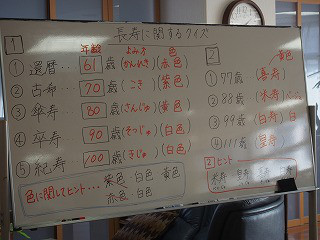 長寿に関するクイズ
1
年齢 よみ方 色
① 還暦… 61 歳 (かんれき) (赤色)
② 古希… 70 歳 (こき) (紫色)
③ 傘寿… 80 歳 (さんじゅ) (黄色)
④ 卒寿… 90 歳 (そつじゅ) (白色)
⑤ 紀寿… 100 歳 (きじゅ) (白色)
色に関してヒント… 紫色 白色 黄色
赤色 白色
2
黄色
① 77歳 (喜寿)
② 88歳 (米寿)
③ 99歳 (白寿) 白
④ 111歳 (皇寿)
2 ヒント
米寿 皇寿 喜寿 白寿